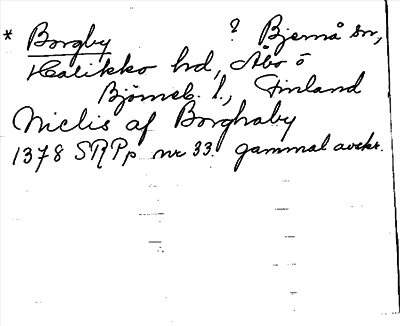 * Borgby ? Bjernå sn,
Halikko hd, Åbo o
Björneb. l., Finland
Niclis af Borghaby
1378 SRPp nr 33. gammal avskr.